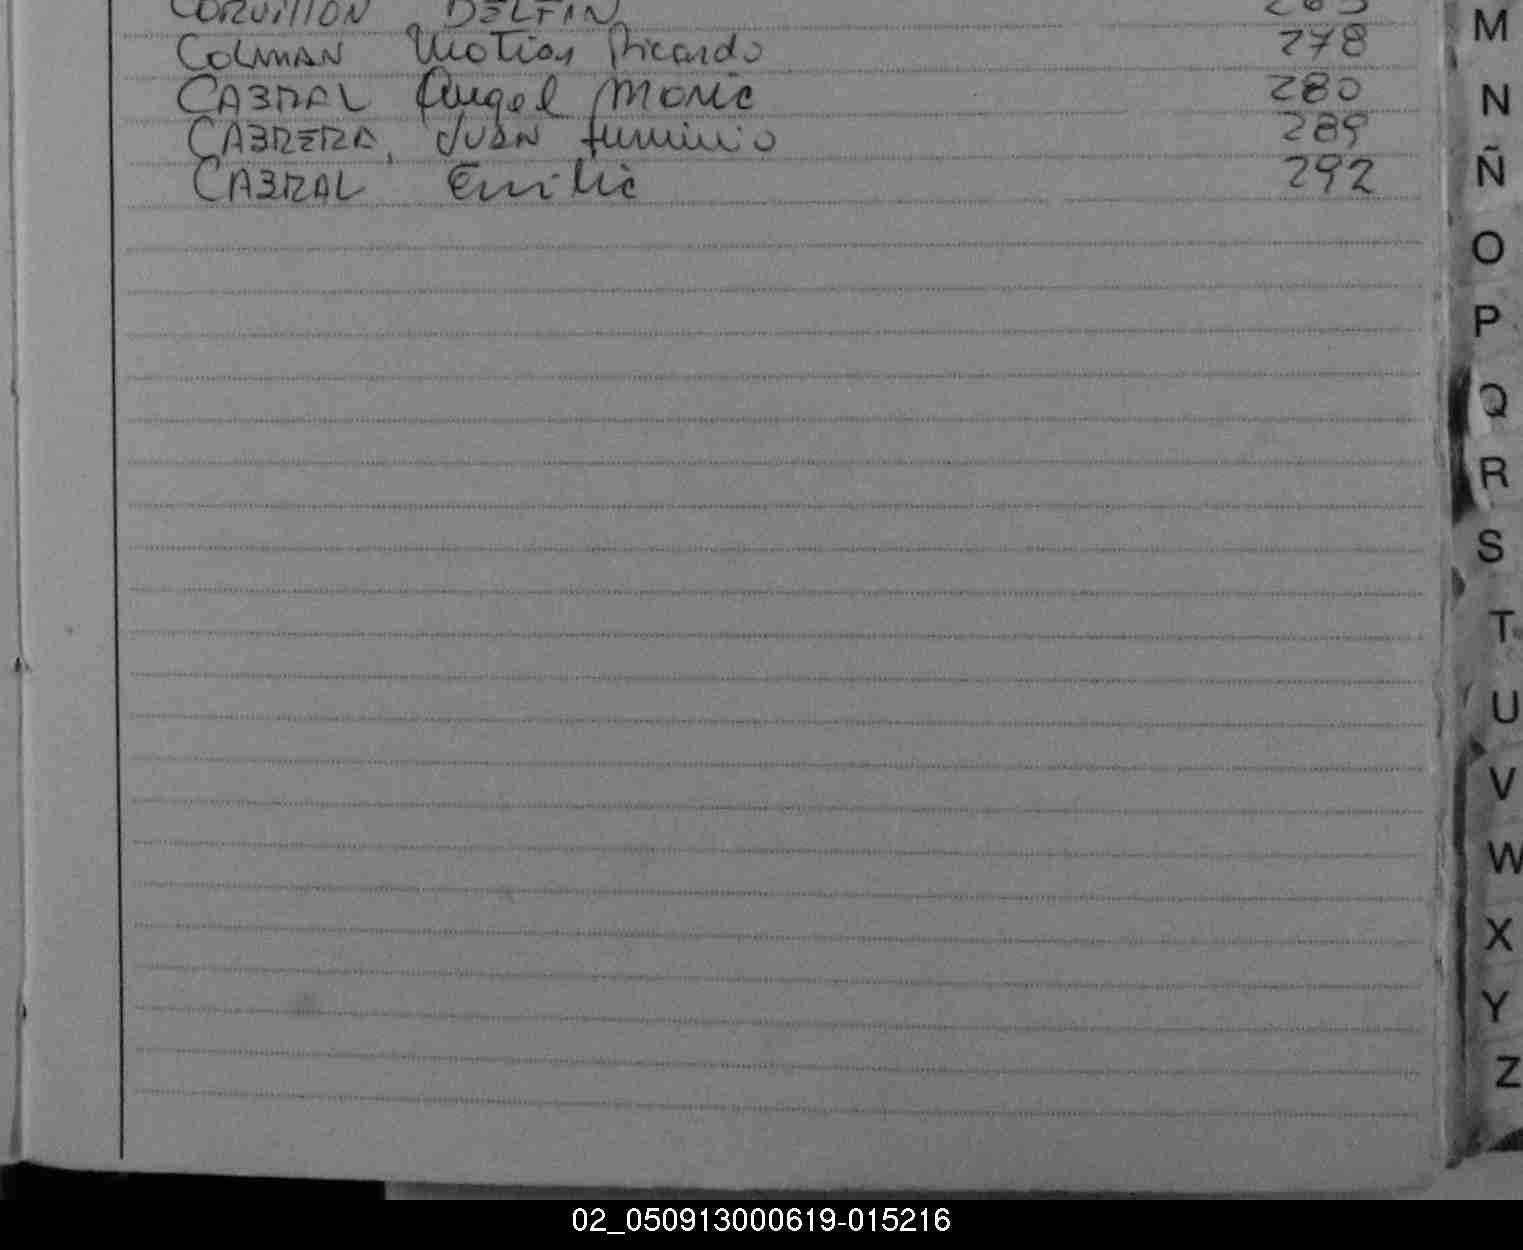 CORVILLON DELFIN
COLMAN Matias Ricardo 278
CABRAL Angel MARIA 280
CABRERA, JUAN 289
CABRAL Emilia 292
M
N
Ñ
O
P
Q
R
S
T
U
V
W
X
Y
Z
02_050913000619-015216